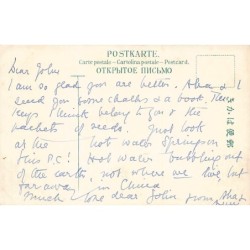 POSTKARTE.
Carte postale — Cartolina postale — Postcard.
ОТКРЫТОЕ ПИСЬМО
Dear John
I am so glad you are better. Also I
send you some chalks & a book. The
keys I think belong to you & the
packets of seeds. Just look
at the hot water Springs on
this P.C! Hot water bubbling out
of the earth, not where we live but
far away in China
Much love dear John from